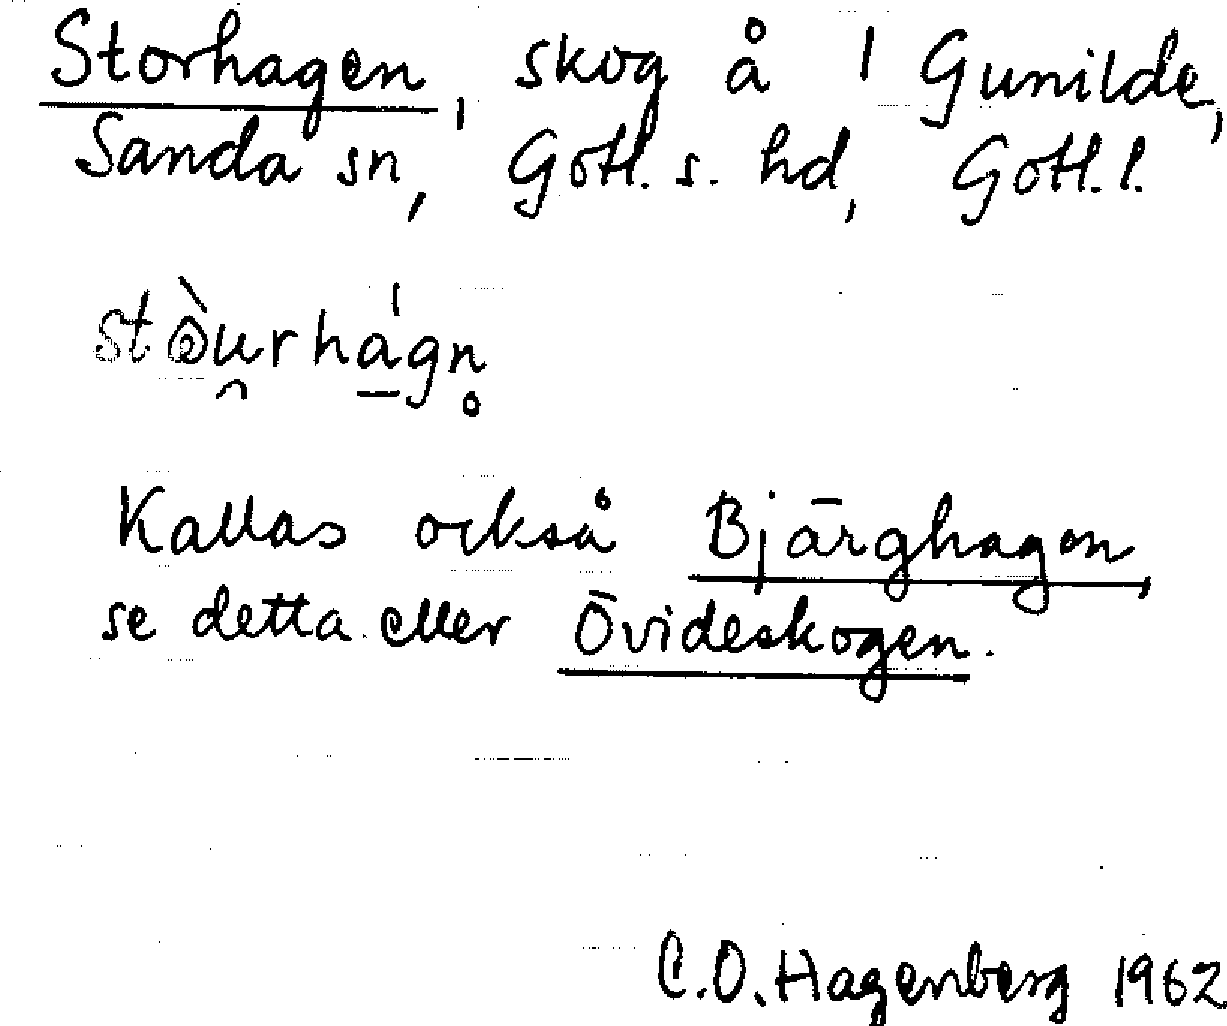 Storhagen, skog å 1 Gunilde,
Sanda sn, Gotl. s. hd, Gotl. l.
stòu̯rhá̱gn̥
Kallas också Bjärghagen,
se detta eller Övideskogen.
C.O. Hagenberg 1962